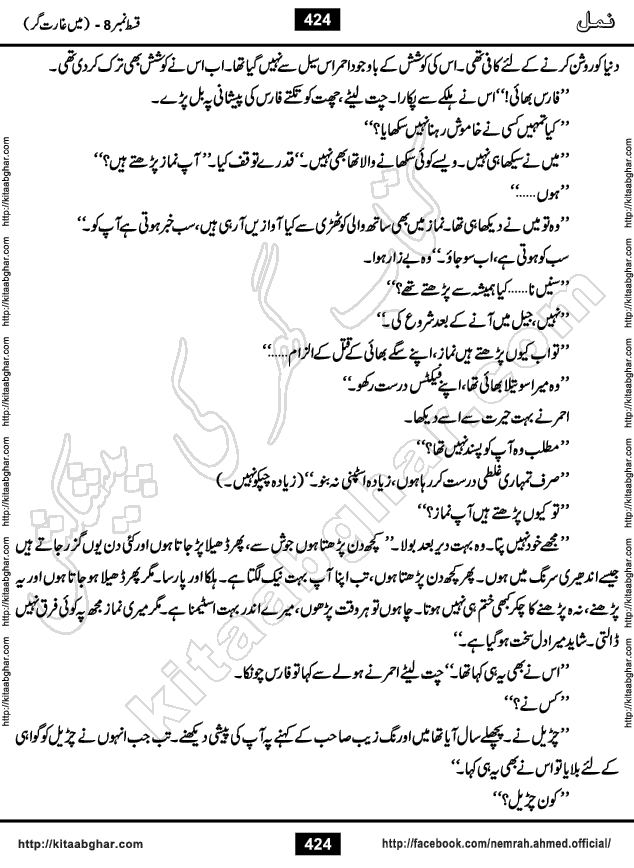 نمل
424
قسط نمبر 8 - (میں غارت گر)
دنیا کو روشن کرنے کے لئے کافی تھی۔ اس کی کوشش کے باوجود احمر اس سیل سے نہیں گیا تھا۔ اب اس نے کوشش بھی ترک کر دی تھی۔
”فارس بھائی!“ اس نے ہلکے سے پکارا۔ چت لیٹے، چھت کو تکتے فارس کی پیشانی پہ بل پڑے۔
”کیا تمہیں کسی نے خاموش رہنا نہیں سکھایا؟“
”میں نے سیکھا ہی نہیں۔ ویسے کوئی سکھانے والا تھا بھی نہیں۔“ قدرے توقف کیا۔ ”آپ نماز پڑھتے ہیں؟“
”ہوں......“
”وہ تو میں نے دیکھا ہی تھا۔ نماز میں بھی ساتھ والی کوٹھڑی سے کیا آوازیں آ رہی ہیں، سب خبر ہوتی ہے آپ کو۔“
سب کو ہوتی ہے، اب سو جاؤ۔“ وہ بے زار ہوا۔
”سنیں نا...... کیا ہمیشہ سے پڑھتے تھے؟“
”نہیں، جیل میں آنے کے بعد شروع کی۔“
”تو اب کیوں پڑھتے ہیں نماز، اپنے سگے بھائی کے قتل کے الزام......“
”وہ میرا سوتیلا بھائی تھا، اپنے فیکٹس درست رکھو۔“
احمر نے بہت حیرت سے اسے دیکھا۔
”مطلب وہ آپ کو پسند نہیں تھا؟“
”صرف تمہاری غلطی درست کر رہا ہوں، زیادہ اسٹپنی نہ بنو۔“ (زیادہ چپکو نہیں۔)
”تو کیوں پڑھتے ہیں آپ نماز؟“
”مجھے خود نہیں پتا۔ وہ بہت دیر بعد بولا۔ ”کچھ دن پڑھتا ہوں جوش سے، پھر ڈھیلا پڑ جاتا ہوں اور کئی دن یوں گزر جاتے ہیں
جیسے اندھیری سرنگ میں ہوں۔ پھر کچھ دن پڑھتا ہوں، تب اپنا آپ بہت نیک لگتا ہے۔ ہلکا اور پارسا۔ مگر پھر ڈھیلا ہو جاتا ہوں اور یہ
پڑھنے، نہ پڑھنے کا چکر کبھی ختم ہی نہیں ہوتا۔ چاہوں تو ہر وقت پڑھوں، میرے اندر بہت اسٹیمنا ہے۔ مگر میری نماز مجھ پہ کوئی فرق نہیں
ڈالتی۔ شاید میرا دل سخت ہو گیا ہے۔“
”اس نے بھی یہ ہی کہا تھا۔“ چت لیٹے احمر نے ہولے سے کہا تو فارس چونکا۔
”کس نے؟“
”چڑیل نے۔ پچھلے سال آیا تھا میں اورنگ زیب صاحب کے کہنے پہ آپ کی پیشی دیکھنے۔ تب جب انہوں نے چڑیل کو گواہی
کے لئے بلایا تو اس نے بھی یہ ہی کہا۔“
”کون چڑیل؟“
http://kitaabghar.com
424
http://facebook.com/nemrah.ahmed.official/
http://kitaabghar.com
http://kitaabghar.com
http://kitaabghar.com
http://kitaabghar.com
http://kitaabghar.com
http://kitaabghar.com
http://kitaabghar.com
http://kitaabghar.com
http://kitaabghar.com
http://kitaabghar.com
http://kitaabghar.com
http://kitaabghar.com
کتاب گھر کی پیشکش
kitaabghar.com